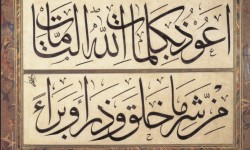 اعوذ بكلمات الله التامات
من شر ما خلق وذرا وبراء